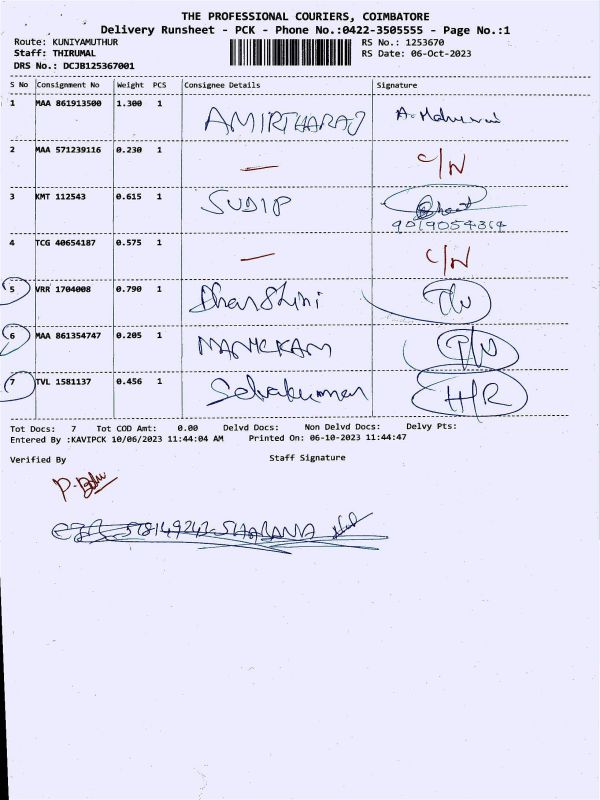 THE PROFESSIONAL COURIERS, COIMBATORE
Delivery Runsheet - PCK - Phone No.:0422-3505555 - Page No.:1
Route: KUNIYAMUTHUR RS No.: 1253670
Staff: THIRUMAL RS Date: 06-Oct-2023
DRS No.: DCJB125367001
S No Consignment No Weight PCS Consignee Details Signature
1 MAA 861913500 1.300 1 AMIRTHARAJ
2 MAA 571239116 0.230 1 — C/N
3 KMT 112543 0.615 1 SUDIP
9019054364
4 TCG 40654187 0.575 1 — C/N
5 VRR 1704008 0.790 1 Dharshini
6 MAA 861354747 0.205 1 MANICKAM
7 TVL 1581137 0.456 1 Selvakumar H/R
Tot Docs: 7 Tot COD Amt: 0.00 Delvd Docs: Non Delvd Docs: Delvy Pts:
Entered By :KAVIPCK 10/06/2023 11:44:04 AM Printed On: 06-10-2023 11:44:47
Verified By Staff Signature